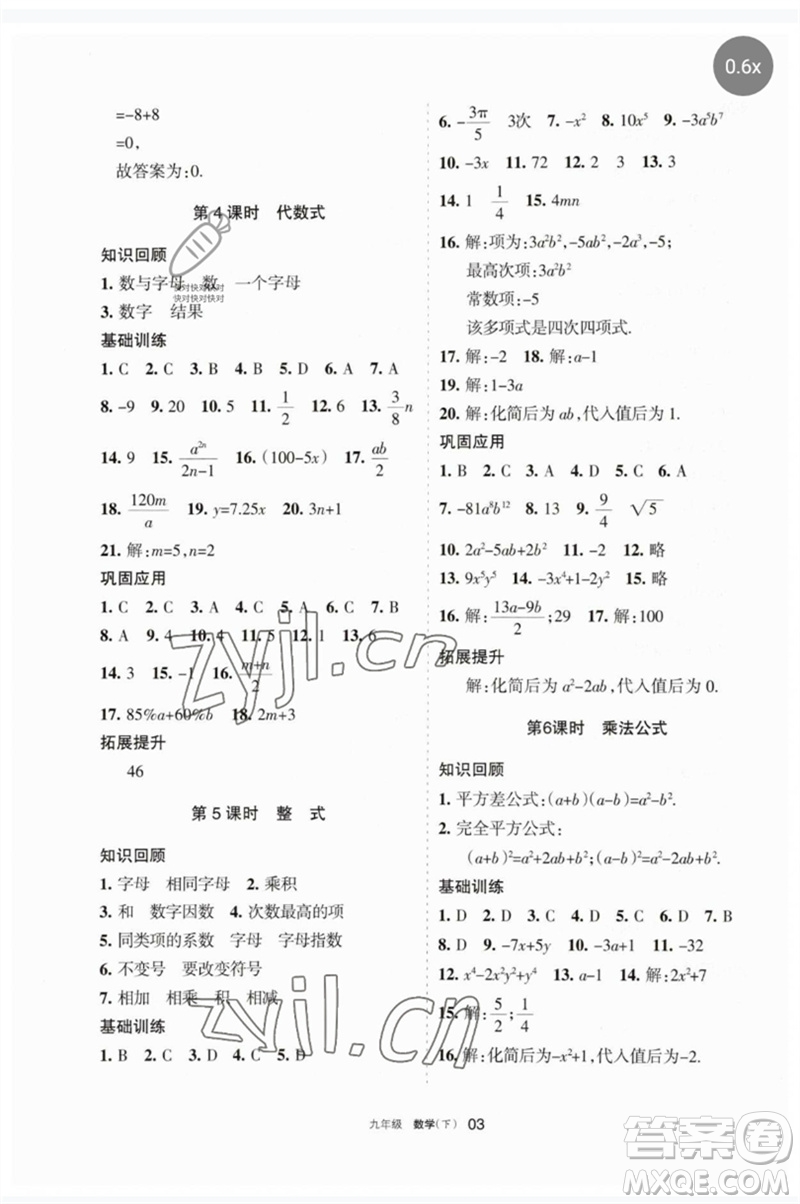 0.6x
=-8+8
=0,
故答案为:0.
第4课时 代数式
知识回顾
1. 数与字母 数 一个字母
快对快对快对
快对快对快对
3. 数字 结果
基础训练
1. C 2. C 3. B 4. B 5. D 6. A 7. A
8. -9 9. 20 10. 5 11. 1/2 12. 6 13. 3/8 n
14. 9 15. a²ⁿ/(2n-1) 16. (100-5x) 17. ab/2
18. 120m/a 19. y=7.25x 20. 3n+1
21. 解:m=5,n=2
巩固应用
1. C 2. C 3. C 4. D 5. D 6. C 7. B
8. A 9. 4 10. 4 11. 5 12. 1 13. 6
14. 3 15. -1 16. (m+n)/2
17. 85%a+60%b 18. 2m+3
拓展提升
46
第5课时 整 式
知识回顾
1. 字母 相同字母 2. 乘积
3. 和 数字因数 4. 次数最高的项
5. 同类项的系数 字母 字母指数
6. 不变号 要改变符号
7. 相加 相乘 积 相减
基础训练
1. B 2. D 3. C 4. C 5. D
6. -3π/5 3次 7. -x² 8. 10x⁵ 9. -3a⁵b⁷
10. -3x 11. 72 12. 2 3 13. 5
14. 1 1/4 15. 4mn
16. 解:项为:3a²b²,-5ab²,-2a³,-5;
最高次项:3a²b²
常数项:-5
该多项式是四次四项式.
17. 解:-2 18. 解:a-1
19. 解:1-3a
20. 解:化简后为ab,代入值后为1.
巩固应用
1. B 2. B 3. C 4. D 5. C 6. A
7. -81a⁸b¹² 8. 13 9. 9/4 √5
10. 2a²-5ab+2b² 11. 略 12. 略
13. 9x⁵y⁵ 14. D 15. -3x⁴+1-2y²
16. 解:(13a-9b)/2;29 17. 解:100
拓展提升
解:化简后为a²-2ab,代入值后为0.
第6课时 乘法公式
知识回顾
1. 平方差公式:(a+b)(a-b)=a²-b².
2. 完全平方公式:
(a+b)²=a²+2ab+b²;(a-b)²=a²-2ab+b².
基础训练
1. D 2. D 3. C 4. D 5. A 6. C 7. D
8. D 9. -7x+5y 10. -3 11. -32
12. x⁴-2x²y²+y⁴ 13. a-1 14. 解:2x²+7
15. 解:5/2;1/4
16. 解:化简后为-x²+1,代入值后为-2.
zyjl.cn
zyjl.cn
九年级 数学(下) 03
答案圈
MXQE.COM